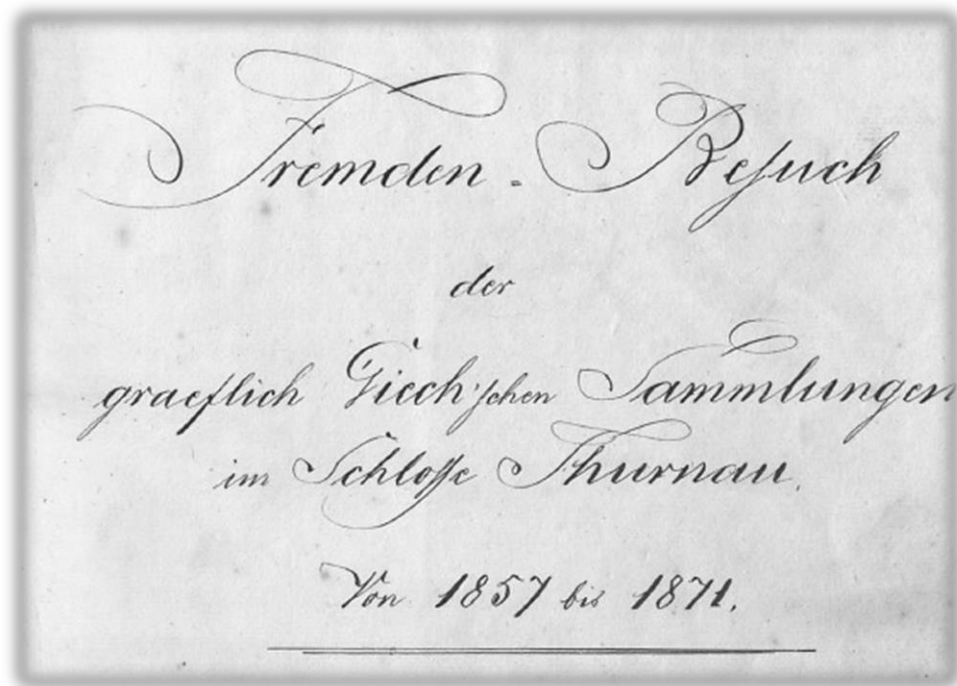 Fremden-Besuch
der
graeflich Giech'schen Sammlungen
im Schlosse Thurnau.
Von 1857 bis 1871.